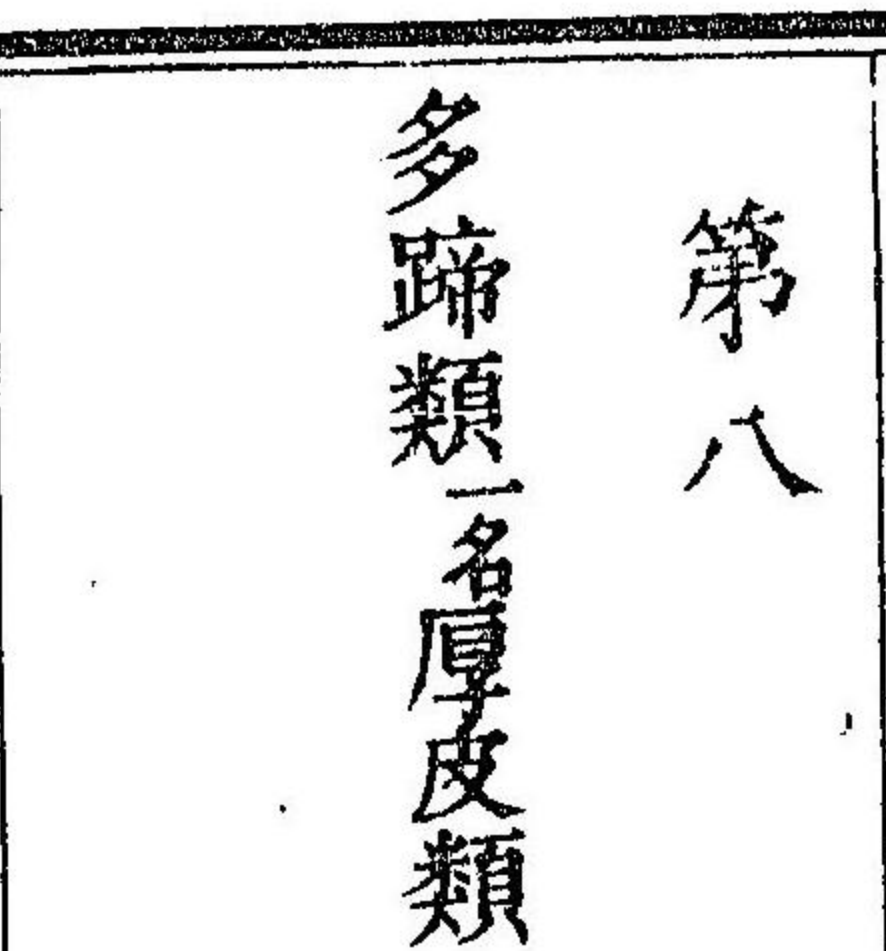 第八
多蹄類一名厚皮類